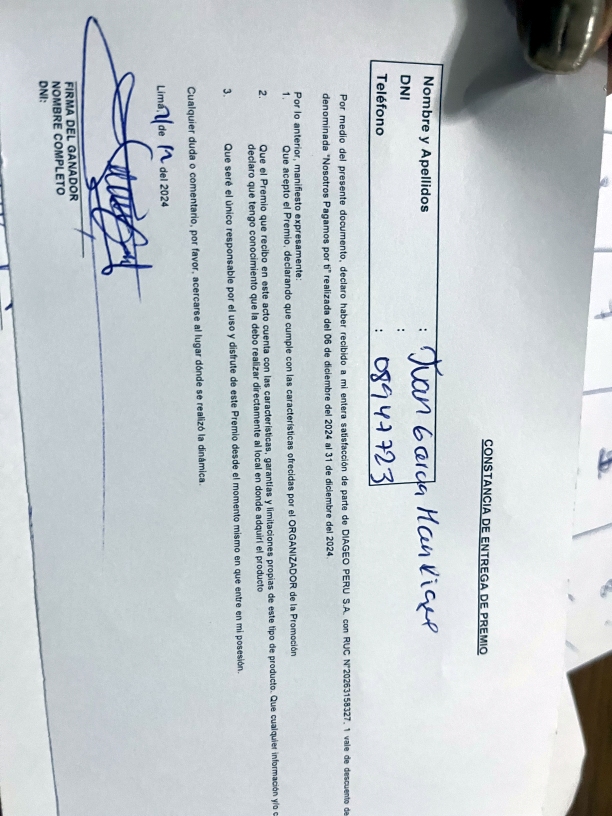 CONSTANCIA DE ENTREGA DE PREMIO
Nombre y Apellidos : Juan Garcia Manrique
DNI :
Teléfono : 08947723
Por medio del presente documento, declaro haber recibido a mi entera satisfacción de parte de DIAGEO PERU S.A. con RUC N°20263158327, 1 vale de descuento de
denominada "Nosotros Pagamos por ti" realizada del 06 de diciembre del 2024 al 31 de diciembre del 2024.
Por lo anterior, manifiesto expresamente:
1. Que acepto el Premio, declarando que cumple con las características ofrecidas por el ORGANIZADOR de la Promoción
2. Que el Premio que recibo en este acto cuenta con las características, garantías y limitaciones propias de este tipo de producto. Que cualquier información y/o c
declaro que tengo conocimiento que la debo realizar directamente al local en donde adquirí el producto
3. Que seré el único responsable por el uso y disfrute de este Premio desde el momento mismo en que entre en mi posesión.
Cualquier duda o comentario, por favor, acercarse al lugar dónde se realizó la dinámica.
Lima, de del 2024
FIRMA DEL GANADOR
NOMBRE COMPLETO
DNI: